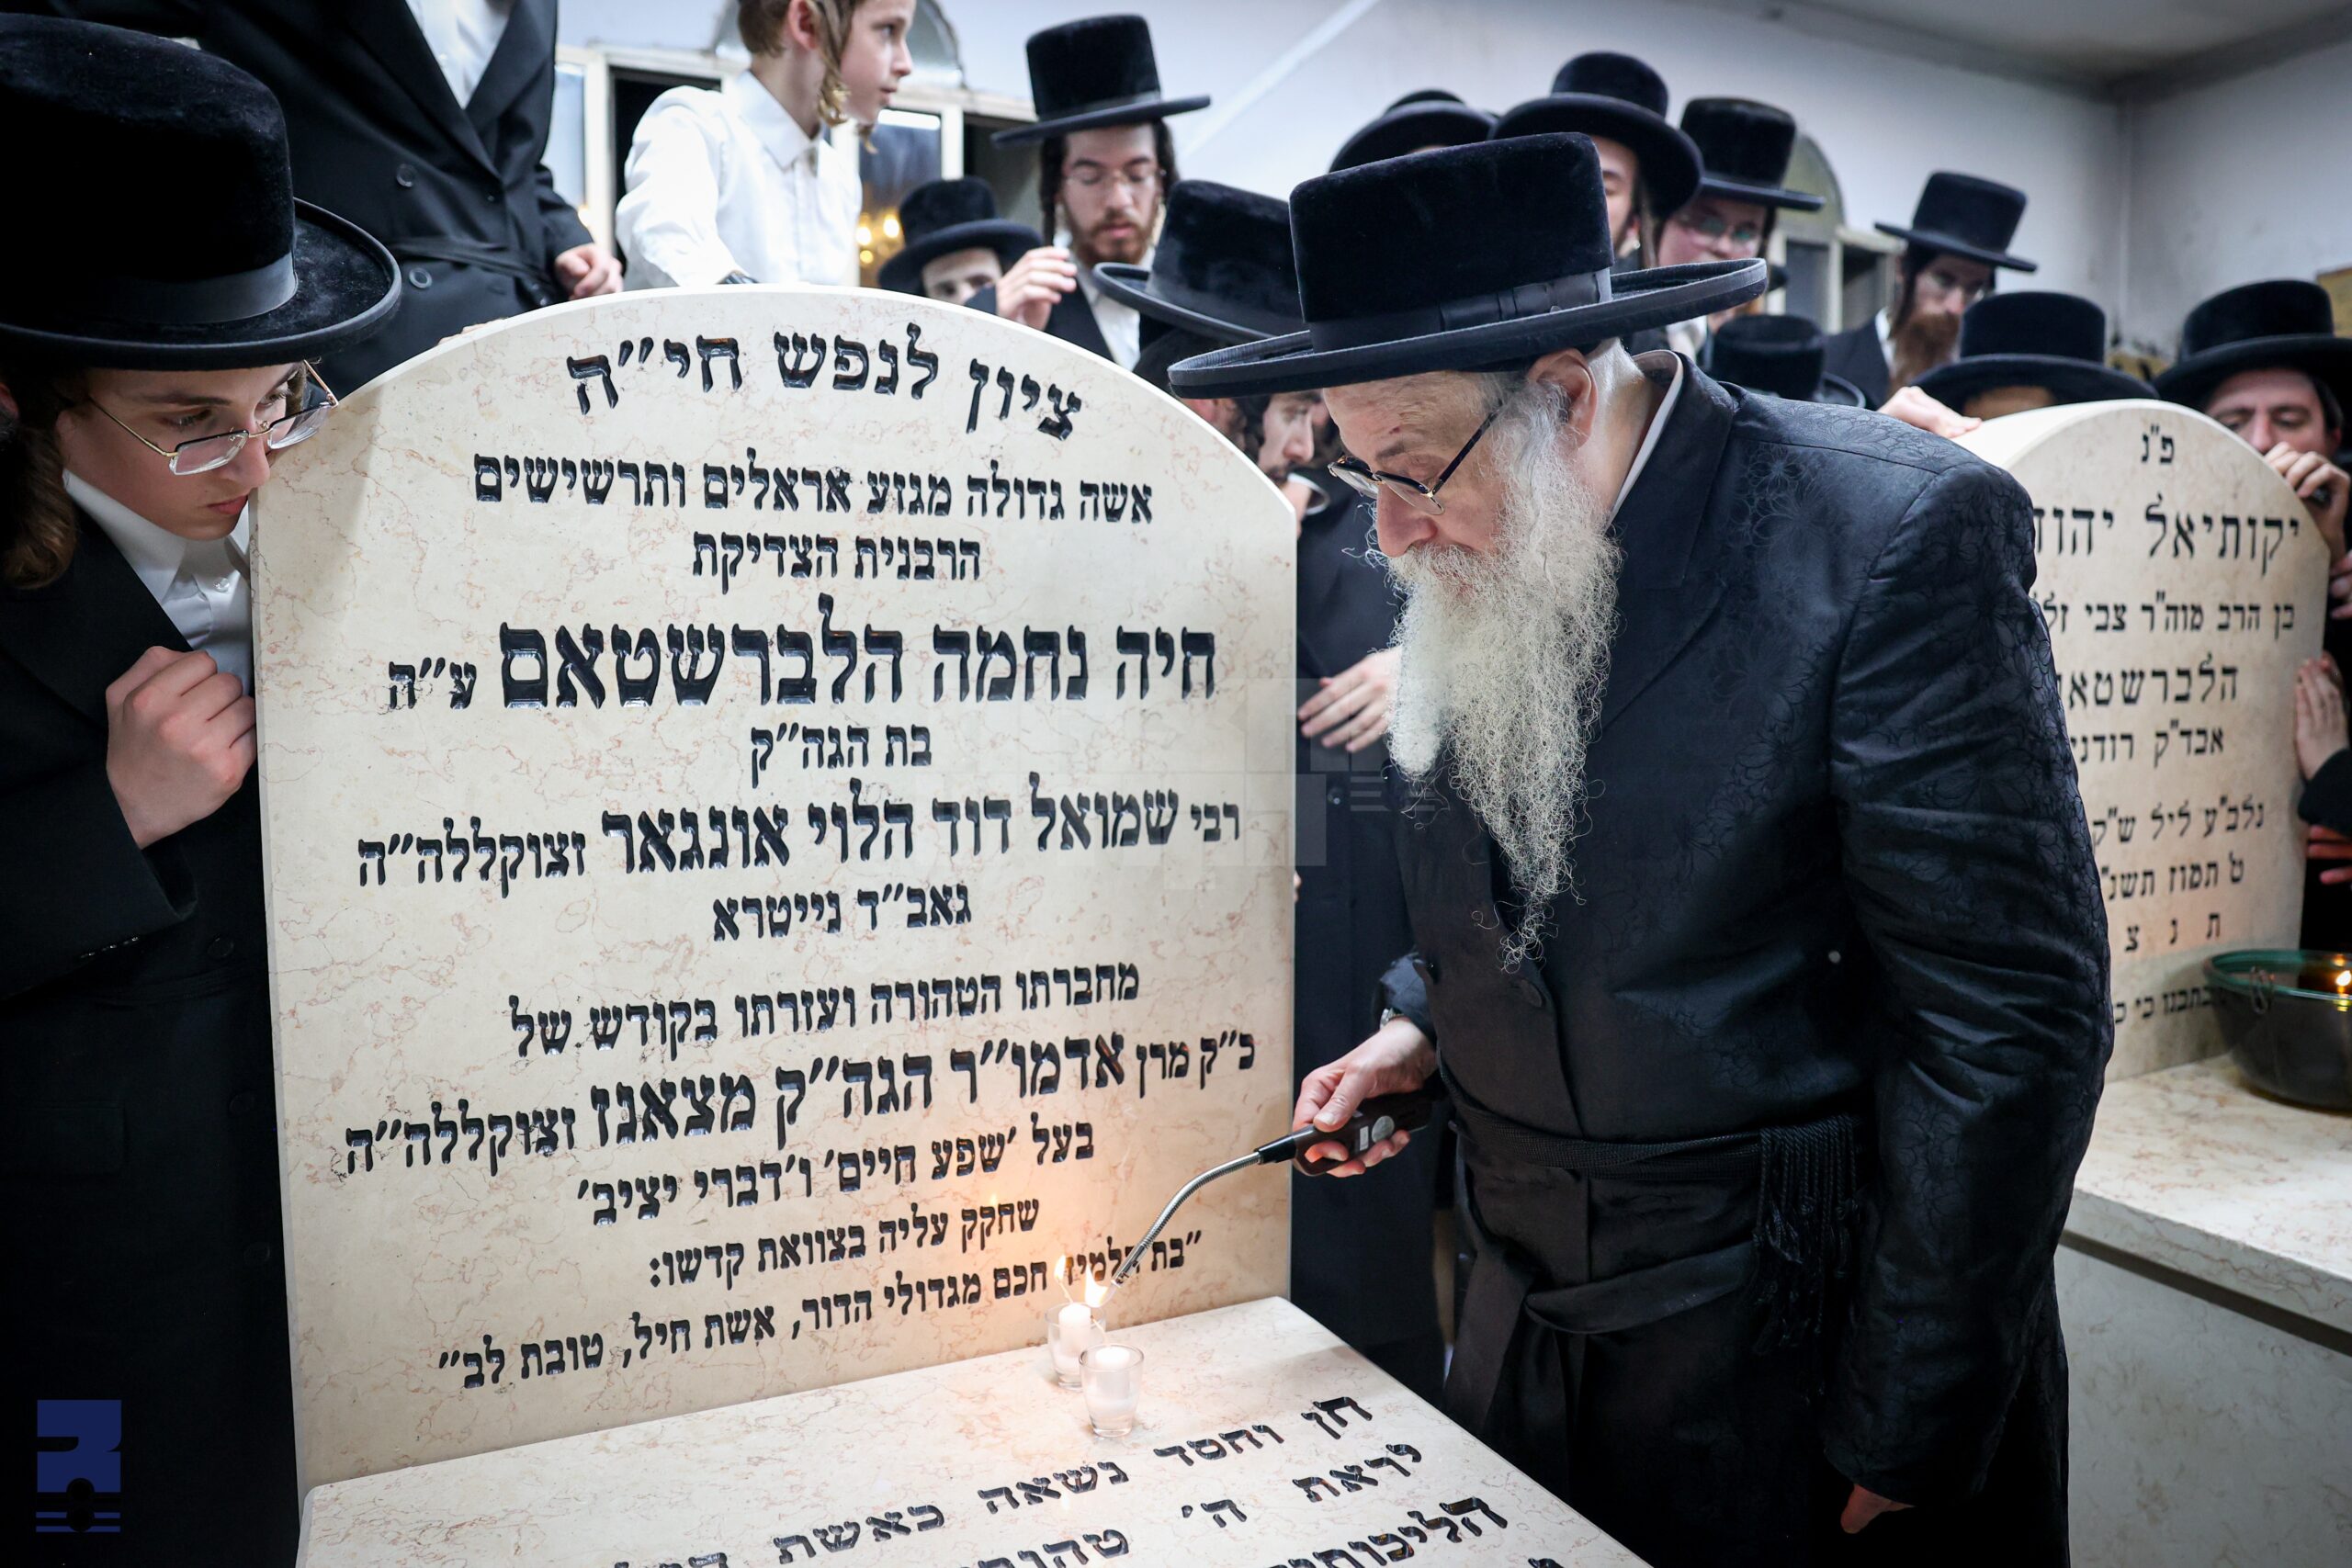 ציון לנפש חי״ה
אשה גדולה מגזע אראלים ותרשישים
הרבנית הצדיקת
חיה נחמה הלברשטאם ע״ה
בת הגה״ק
רבי שמואל דוד הלוי אונגאר זצוקללה״ה
גאב״ד נייטרא
מחברתו הטהורה ועזרתו בקודש של
כ״ק מרן אדמו״ר הגה״ק מצאנז זצוקללה״ה
בעל ׳שפע חיים׳ ו׳דברי יציב׳
שחקק עליה בצוואת קדשו:
״בת תלמיד חכם מגדולי הדור, אשת חיל, טובת לב״
חן וחסד נשאה כאשת
יראת ה׳
פ"נ
יקותיאל
בן הרב מוה"ר צבי
אבד"ק
נלב"ע ליל ש"ק
ט תמוז
ת נ צ